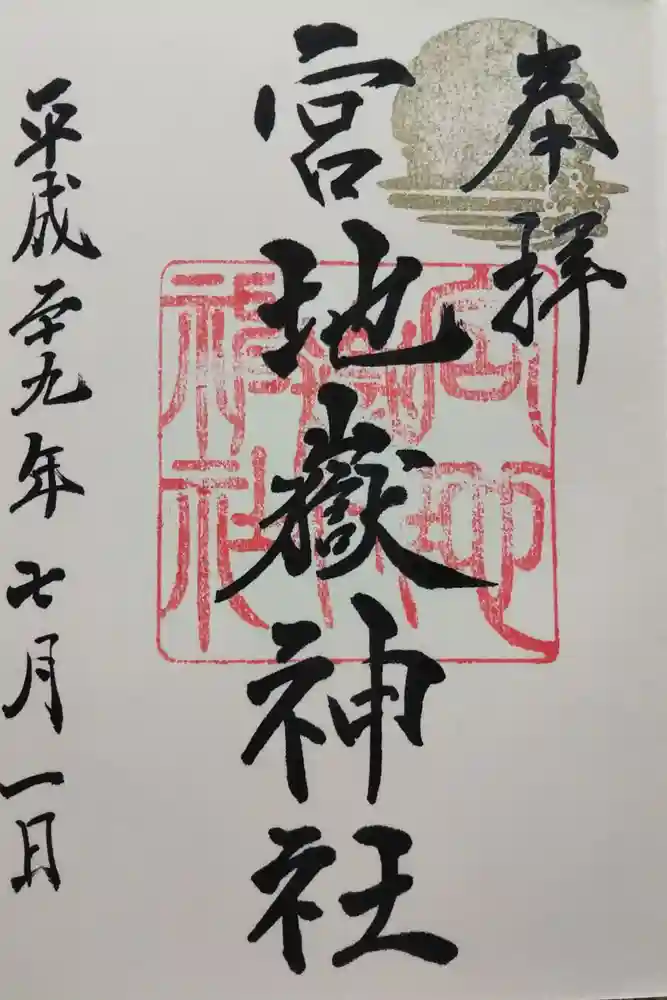 奉拝
宮地嶽神社
平成二十九年七月一日
宮地嶽神社